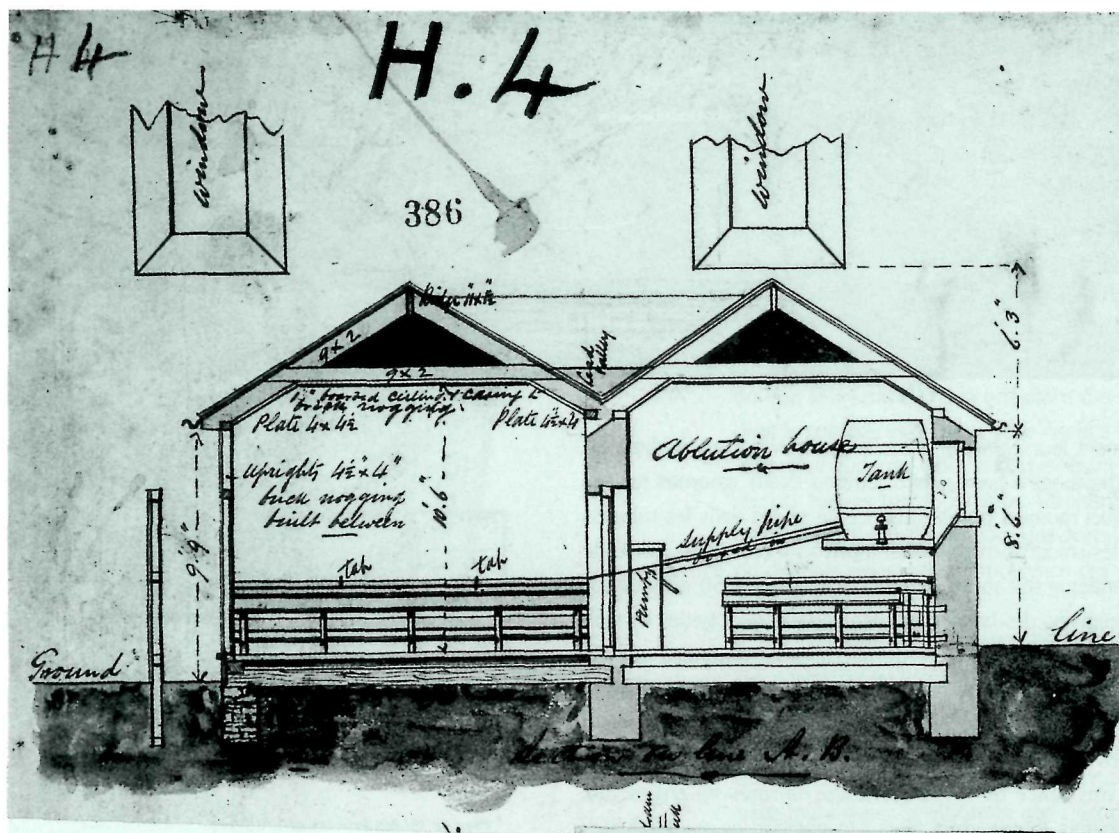 H 4
H. 4
window
window
386
Ridge 11" x 1½"
9 x 2
9 x 2
Lead
Valley
6'.3"
½" boarded ceiling & casing to
brick nogging
Plate 4 x 4½
Plate 4½" x 4
Uprights 4½" x 4"
brick nogging
built between
10'.6"
9'.9"
Ablution house
Tank
8'.6"
supply pipe
boxed in
tap
tap
Pump
Ground
line
Section on line A. B.